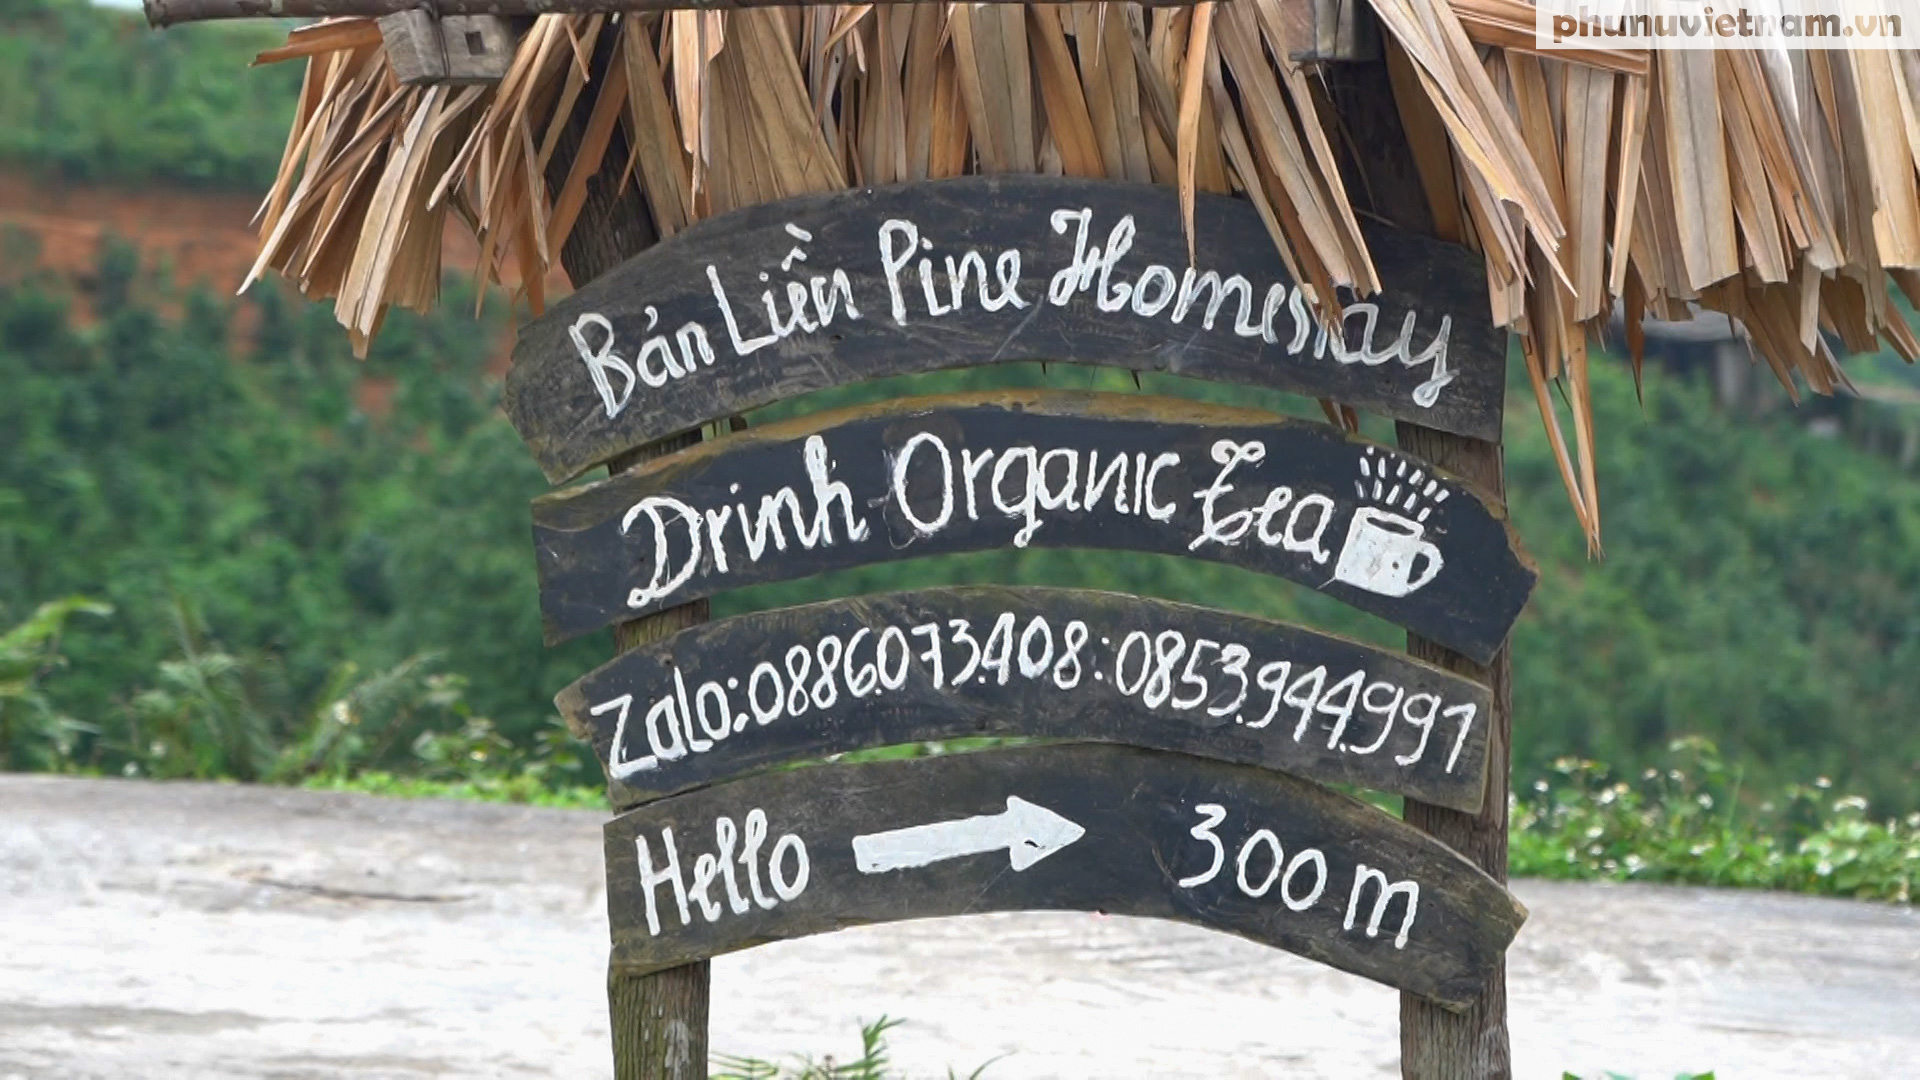 phunuvietnam.vn
Bản Liền Pine Homestay
Drinh Organic Tea
Zalo:0886.073.408:0853.944.991
Hello 300m